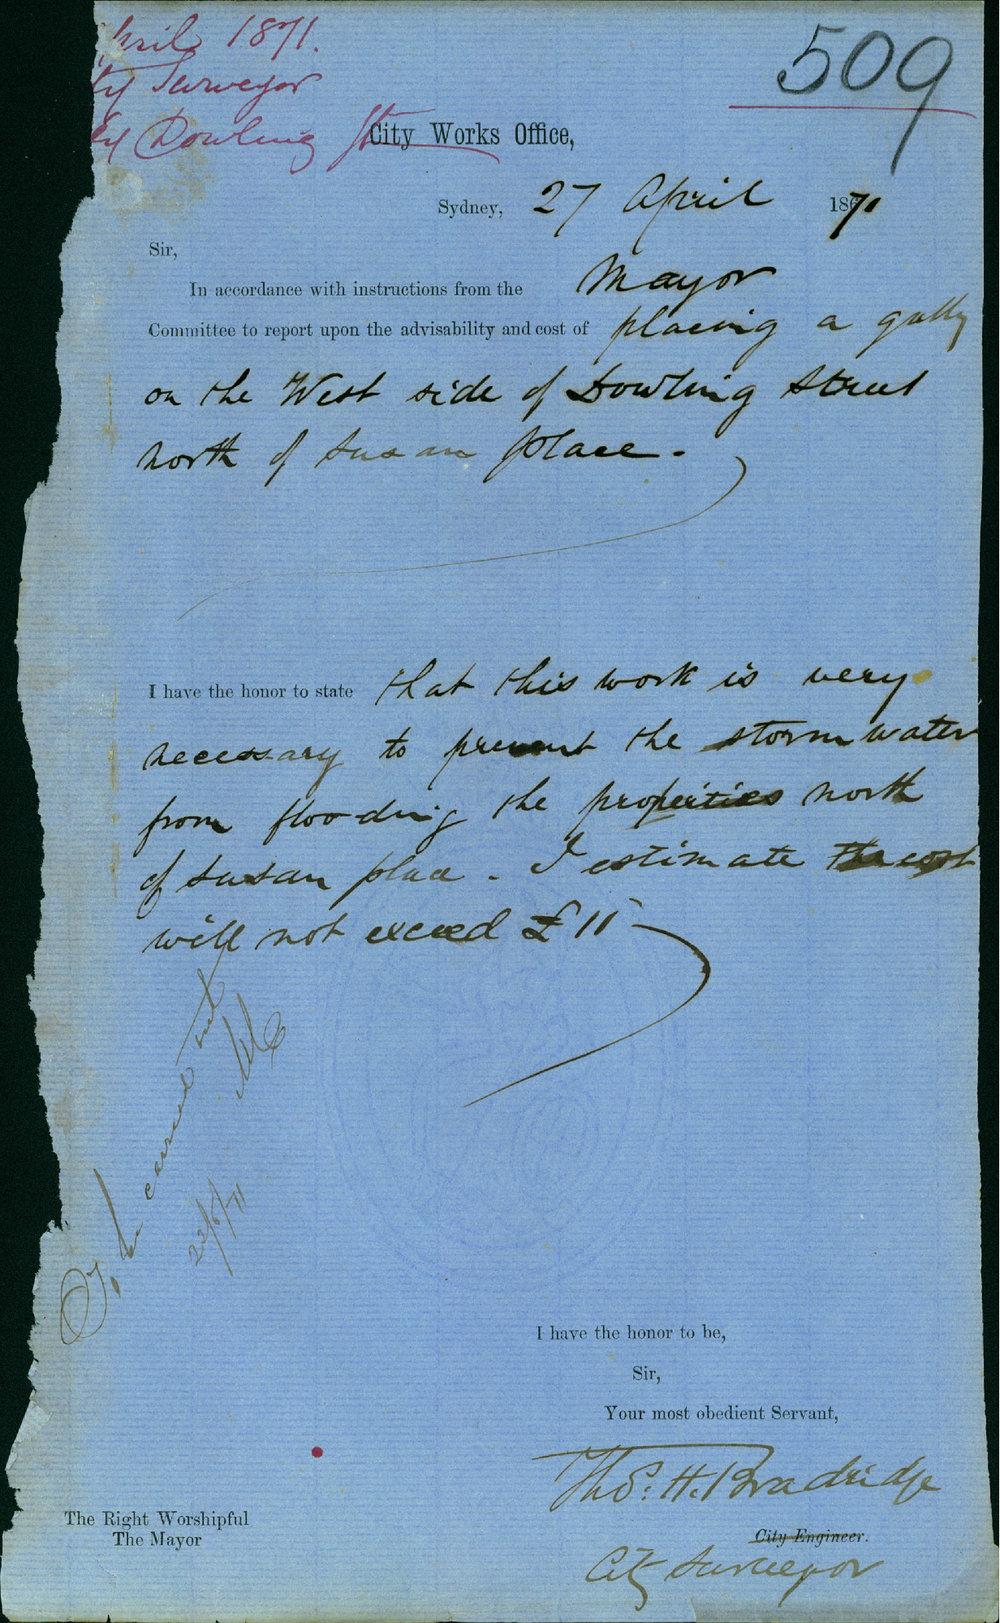 April 1871.
ty Surveyor
Dowling St
509
City Works Office,
Sydney, 27 April 1871
Sir,
In accordance with instructions from the Mayor
Committee to report upon the advisability and cost of placing a gully
on the West side of Dowling Street
north of Susan place.
I have the honor to state that this work is very
necessary to prevent the storm water
from flooding the properties north
of Susan place. I estimate the cost
will not exceed £15
To be carried out
I have the honor to be,
Sir,
Your most obedient Servant,
Thos. H. Bradridge
City Engineer.
City Surveyor
The Right Worshipful
The Mayor